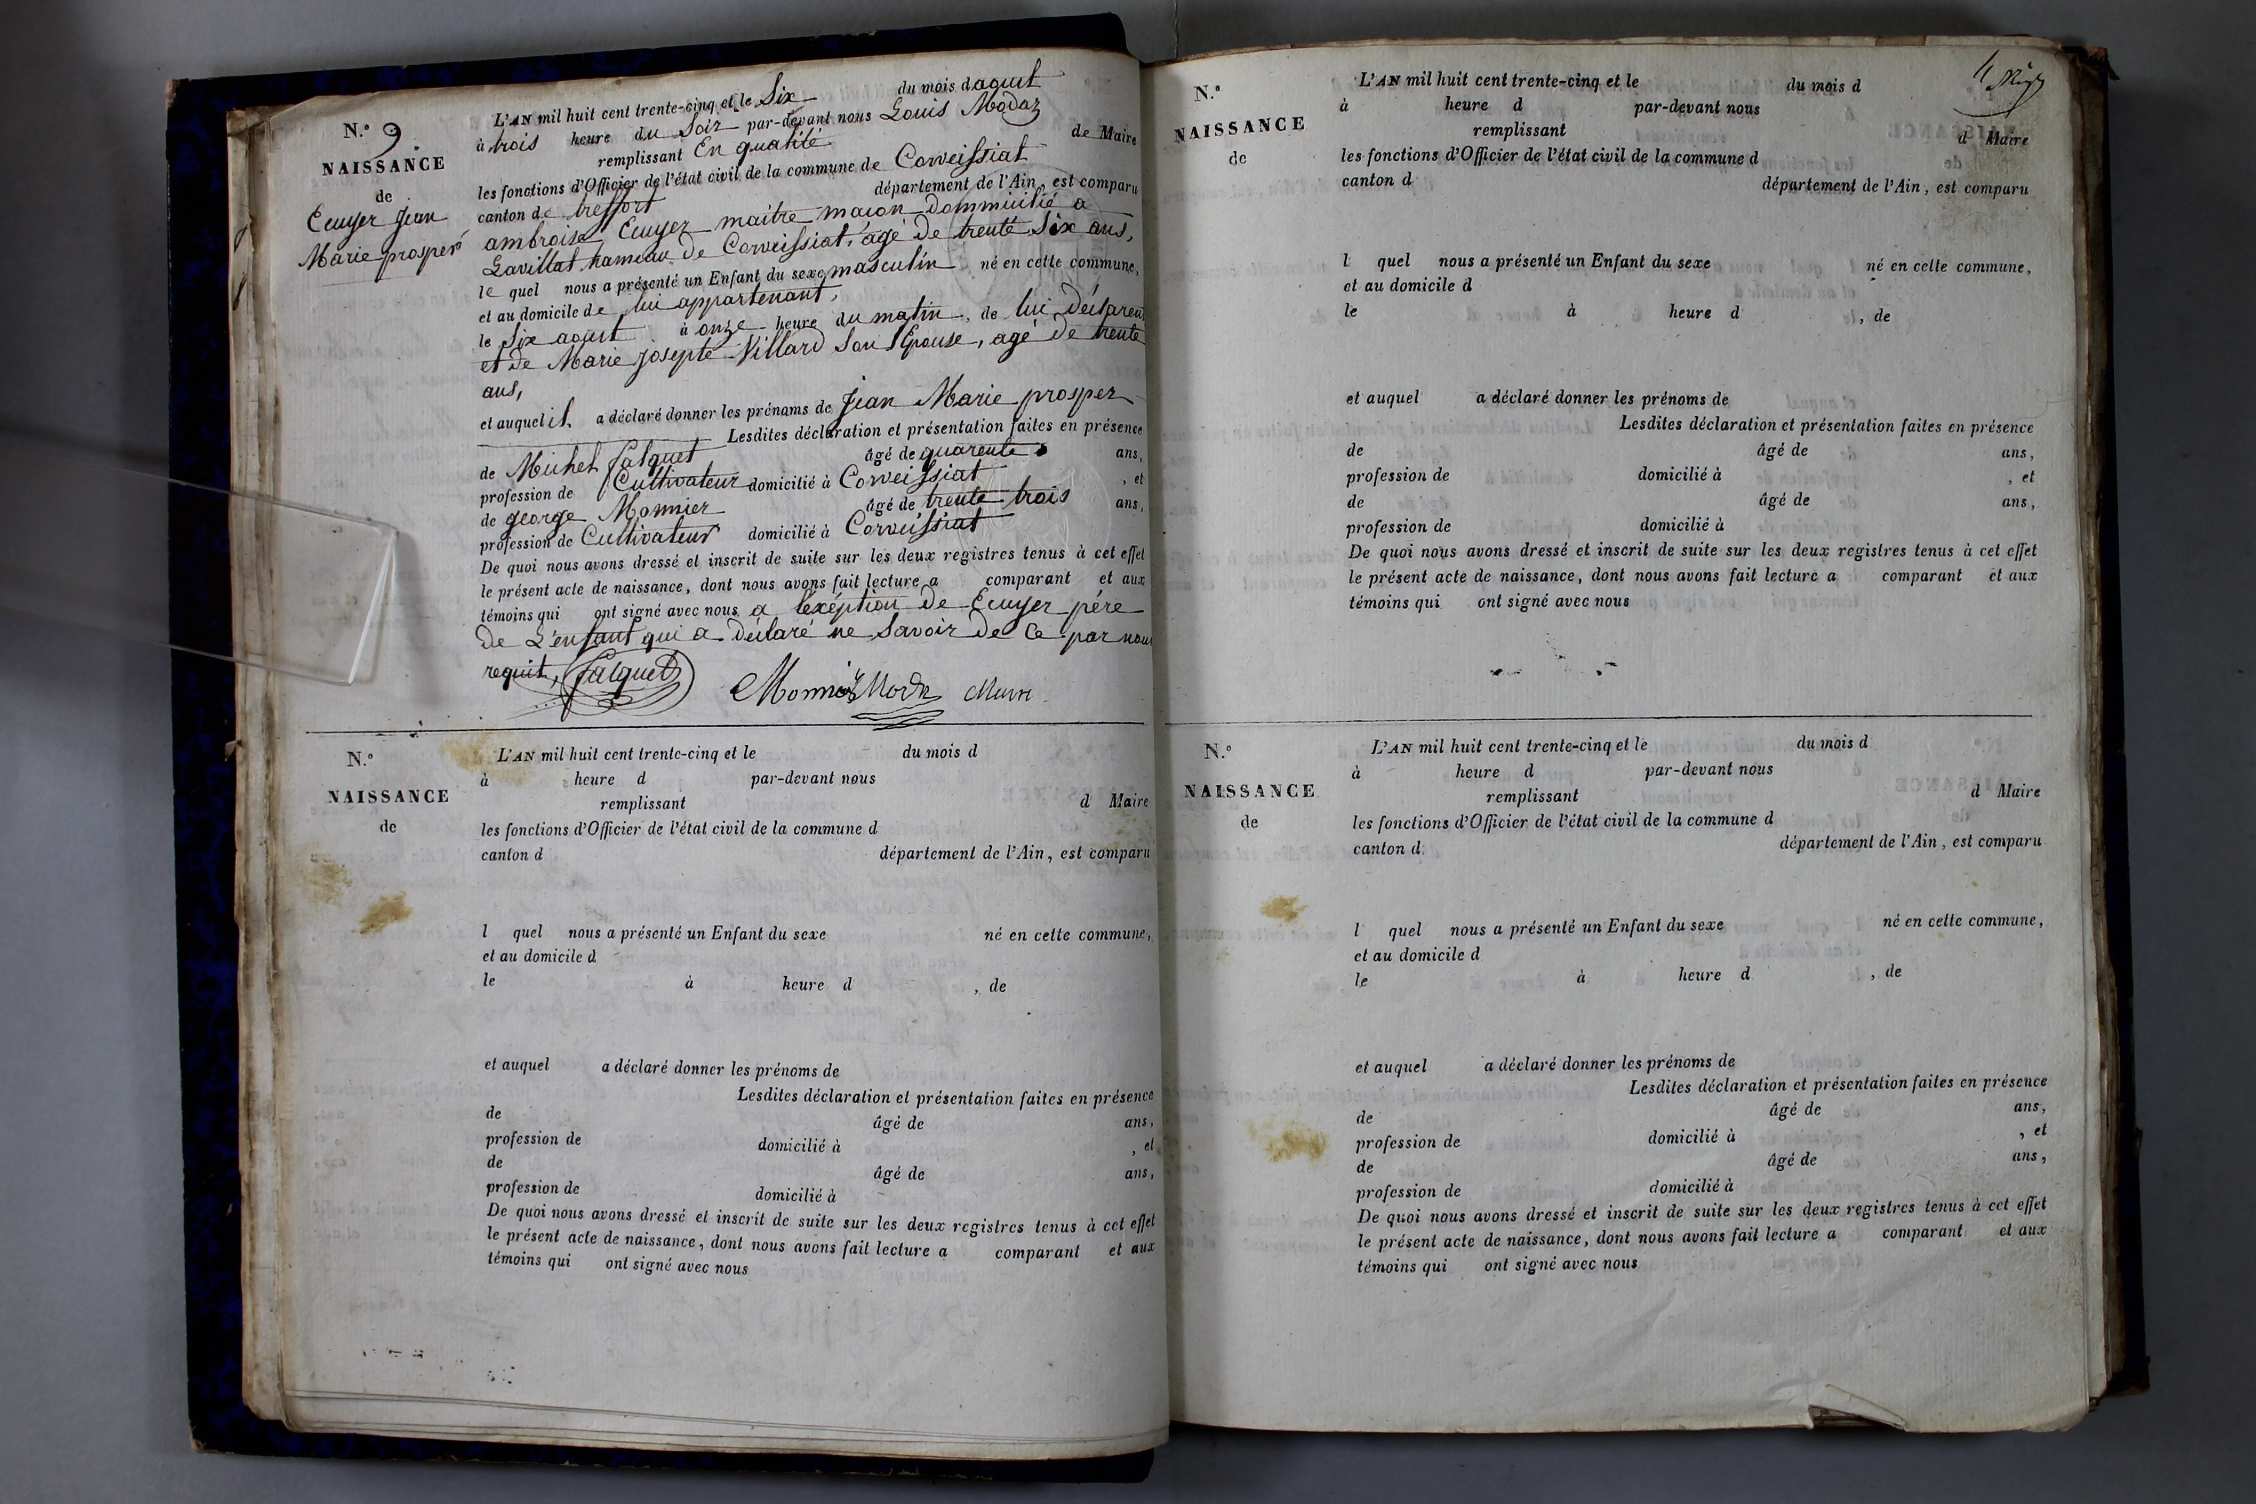 N.º 9
NAISSANCE
de
Ecuyer Jean
Marie prosper
L'AN mil huit cent trente-cinq et le Six du mois d aout
à trois heure du Soir par-devant nous Louis Modaz
remplissant En qualité de Maire
les fonctions d'Officier de l'état civil de la commune de Corveissiat
canton de treffort département de l'Ain, est comparu
ambroise Ecuyer maitre maçon dommicilié a
Lavillat hameau de Corveissiat, agé de trente Six ans,
le quel nous a présenté un Enfant du sexe masculin né en cette commune,
et au domicile de lui appartenant,
le Six aout à onze heure du matin, de lui déclarent
et de Marie Josepte Villard Son Epouse, agé de trente
ans,
et auquel il a déclaré donner les prénoms de Jean Marie prosper
Lesdites déclaration et présentation faites en présence
de Michel falquet âgé de quarente ans,
profession de Cultivateur domicilié à Corveissiat, et
de george Monnier âgé de trente trois ans,
profession de Cultivateur domicilié à Corveissiat
De quoi nous avons dressé et inscrit de suite sur les deux registres tenus à cet effet
le présent acte de naissance, dont nous avons fait lecture a comparant et aux
témoins qui ont signé avec nous a l'exéption de Ecuyer pére
de L'enfant qui a déclaré ne Savoir de Ce par nous
requit, falquet Monnier
N.º
NAISSANCE
de
L'AN mil huit cent trente-cinq et le du mois d
à heure d par-devant nous
remplissant d Maire
les fonctions d'Officier de l'état civil de la commune d
canton d département de l'Ain, est comparu
l quel nous a présenté un Enfant du sexe né en cette commune,
et au domicile d
le à heure d , de
et auquel a déclaré donner les prénoms de
Lesdites déclaration et présentation faites en présence
de âgé de ans,
profession de domicilié à , et
de âgé de ans,
profession de domicilié à
De quoi nous avons dressé et inscrit de suite sur les deux registres tenus à cet effet
le présent acte de naissance, dont nous avons fait lecture a comparant et aux
témoins qui ont signé avec nous
N.º
NAISSANCE
de
L'AN mil huit cent trente-cinq et le du mois d
à heure d par-devant nous
remplissant d Maire
les fonctions d'Officier de l'état civil de la commune d
canton d département de l'Ain, est comparu
l quel nous a présenté un Enfant du sexe né en cette commune,
et au domicile d
le à heure d , de
et auquel a déclaré donner les prénoms de
Lesdites déclaration et présentation faites en présence
de âgé de ans,
profession de domicilié à , et
de âgé de ans,
profession de domicilié à
De quoi nous avons dressé et inscrit de suite sur les deux registres tenus à cet effet
le présent acte de naissance, dont nous avons fait lecture a comparant et aux
témoins qui ont signé avec nous
N.º
NAISSANCE
de
L'AN mil huit cent trente-cinq et le du mois d
à heure d par-devant nous
remplissant d Maire
les fonctions d'Officier de l'état civil de la commune d
canton d département de l'Ain, est comparu
l quel nous a présenté un Enfant du sexe né en cette commune,
et au domicile d
le à heure d , de
et auquel a déclaré donner les prénoms de
Lesdites déclaration et présentation faites en présence
de âgé de ans,
profession de domicilié à , et
de âgé de ans,
profession de domicilié à
De quoi nous avons dressé et inscrit de suite sur les deux registres tenus à cet effet
le présent acte de naissance, dont nous avons fait lecture a comparant et aux
témoins qui ont signé avec nous